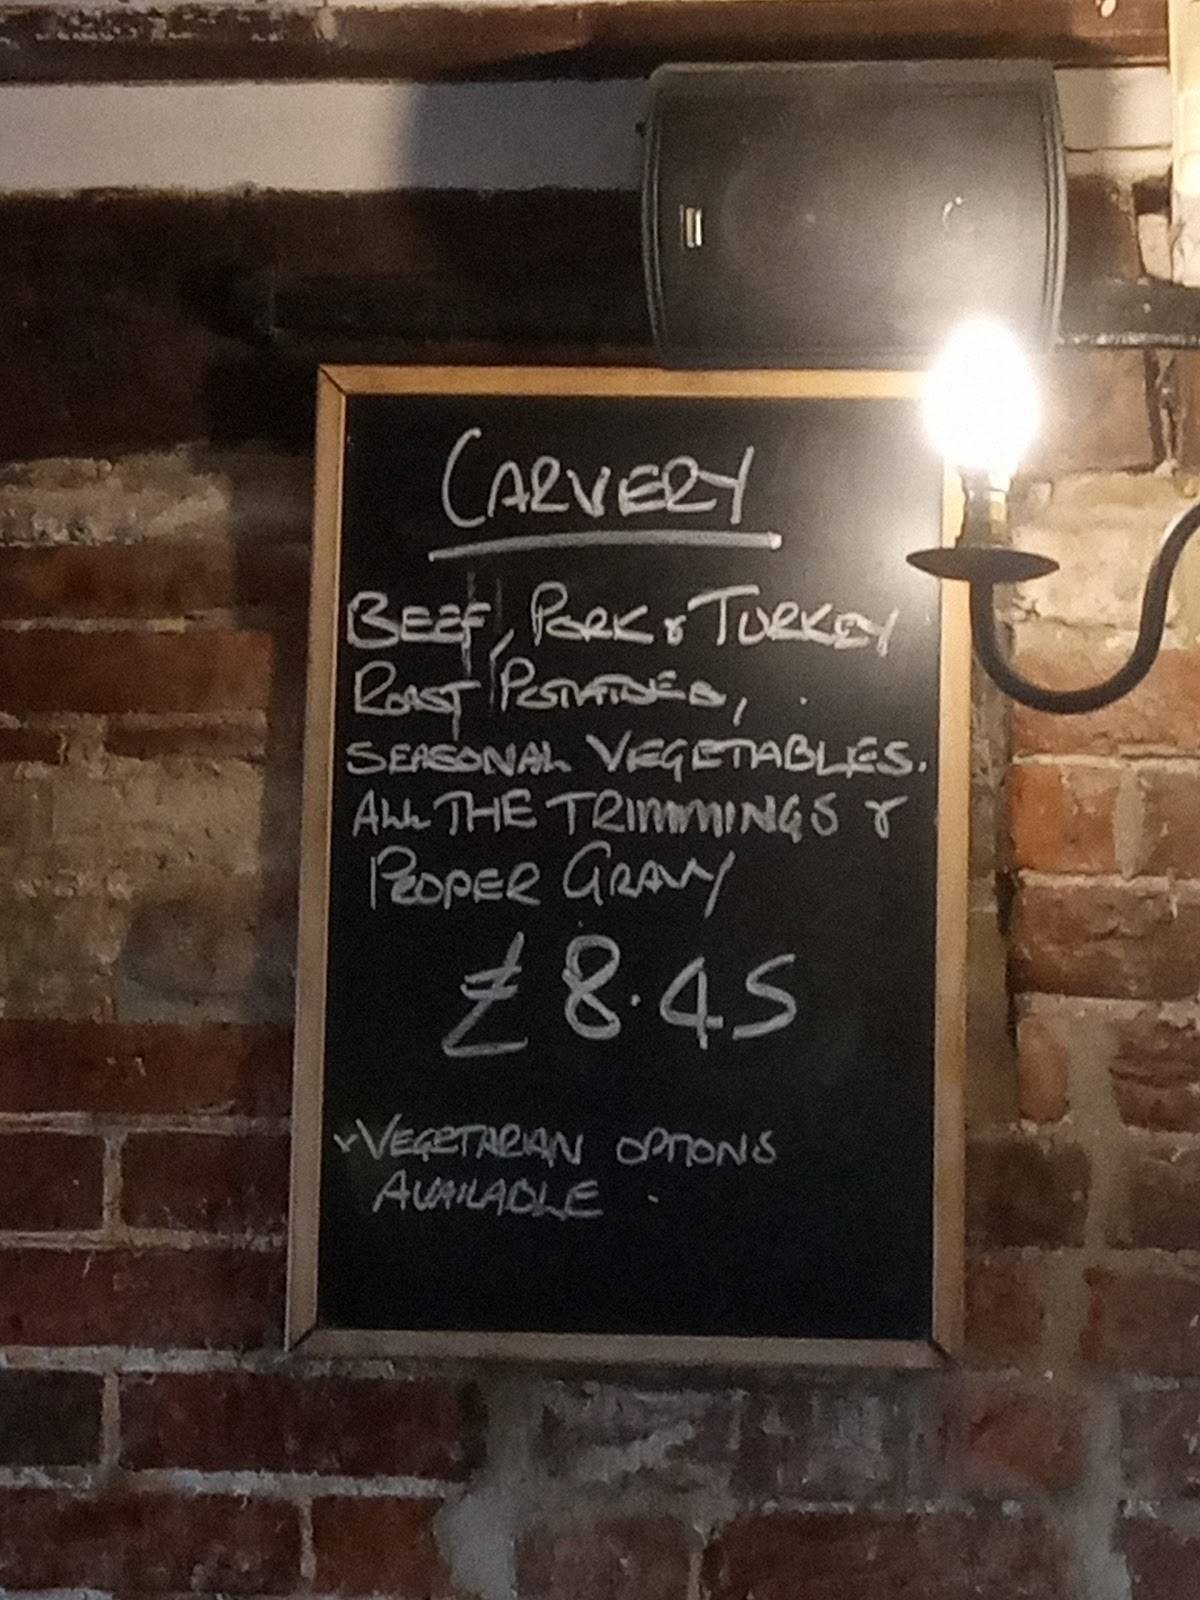 CARVERY
BEEF, PORK & TURKEY
ROAST POTATOES,
SEASONAL VEGETABLES.
ALL THE TRIMMINGS &
PROPER GRAVY
£8.45
* VEGETARIAN OPTIONS
AVAILABLE.